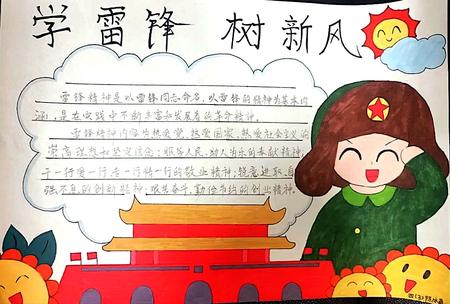 学雷锋 树新风
雷锋精神是以雷锋同志命名,以雷锋的精神为基本内
涵,是在实践中不断丰富和发展着的革命精神。
雷锋精神内容为热爱党,热爱国家,热爱社会主义的
崇高理想和坚定信念;服务人民,助人为乐的奉献精神;
干一行爱一行专一行精一行的敬业精神;锐意进取自
强不息的创新精神,艰苦奋斗,勤俭节约的创业精神。